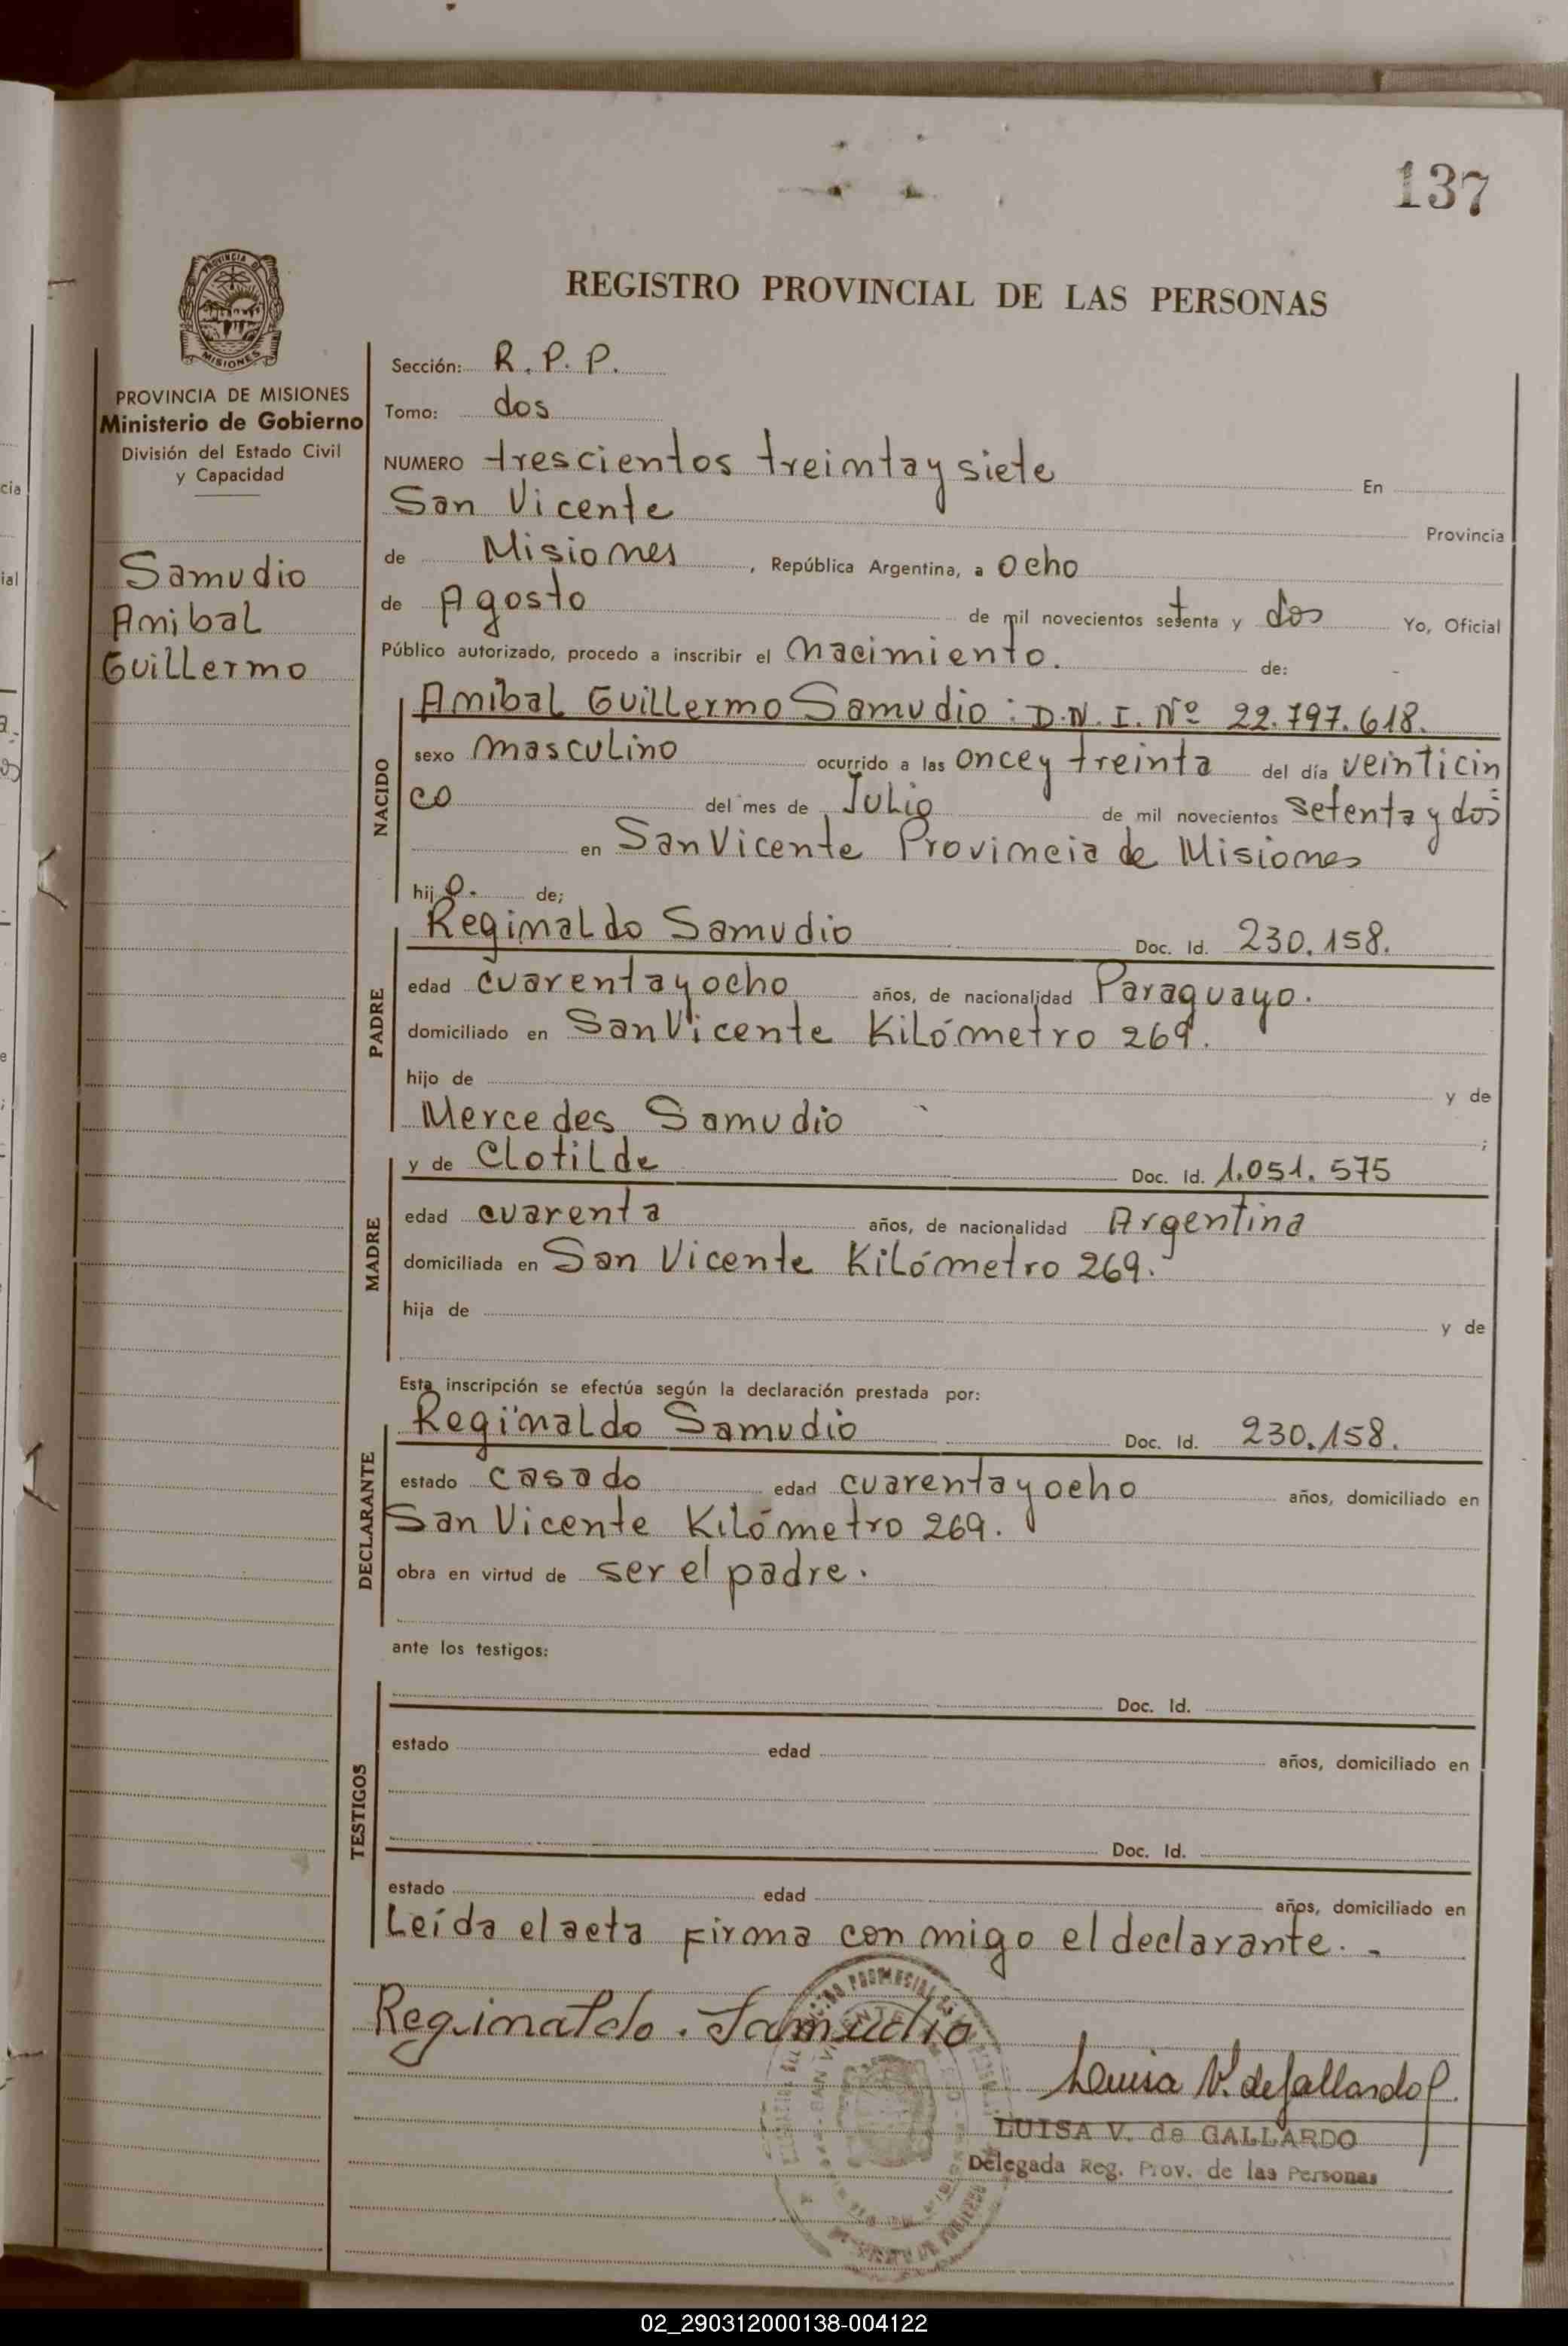 137
REGISTRO PROVINCIAL DE LAS PERSONAS
PROVINCIA DE MISIONES
Ministerio de Gobierno
División del Estado Civil
y Capacidad
Samudio
Anibal
Guillermo
Sección: R. P. P.
Tomo: dos
NUMERO trescientos treinta y siete En
San Vicente Provincia
de Misiones, República Argentina, a ocho
de Agosto de mil novecientos setenta y dos Yo, Oficial
Público autorizado, procedo a inscribir el nacimiento. de:
NACIDO
Anibal Guillermo Samudio: D.N.I. Nº 22.797.618.
sexo masculino ocurrido a las once y treinta del día veinticin
co del mes de Julio de mil novecientos setenta y dos
en San Vicente Provincia de Misiones
hijo. de;
PADRE
Reginaldo Samudio Doc. Id. 230.158.
edad cuarenta y ocho años, de nacionalidad Paraguayo.
domiciliado en San Vicente Kilómetro 269.
hijo de y de
Mercedes Samudio ;
MADRE
y de Clotilde Doc. Id. 1.051.575
edad cuarenta años, de nacionalidad Argentina
domiciliada en San Vicente Kilómetro 269.
hija de y de
Esta inscripción se efectúa según la declaración prestada por:
DECLARANTE
Reginaldo Samudio Doc. Id. 230.158.
estado casado edad cuarenta y ocho años, domiciliado en
San Vicente Kilómetro 269.
obra en virtud de ser el padre.
ante los testigos:
TESTIGOS
Doc. Id.
estado edad años, domiciliado en
Doc. Id.
estado edad años, domiciliado en
Leída el acta firma con migo el declarante. -
Reginaldo. Samudio
Luisa V. de Gallardo
LUISA V. de GALLARDO
Delegada Reg. Prov. de las Personas
02_290312000138-004122